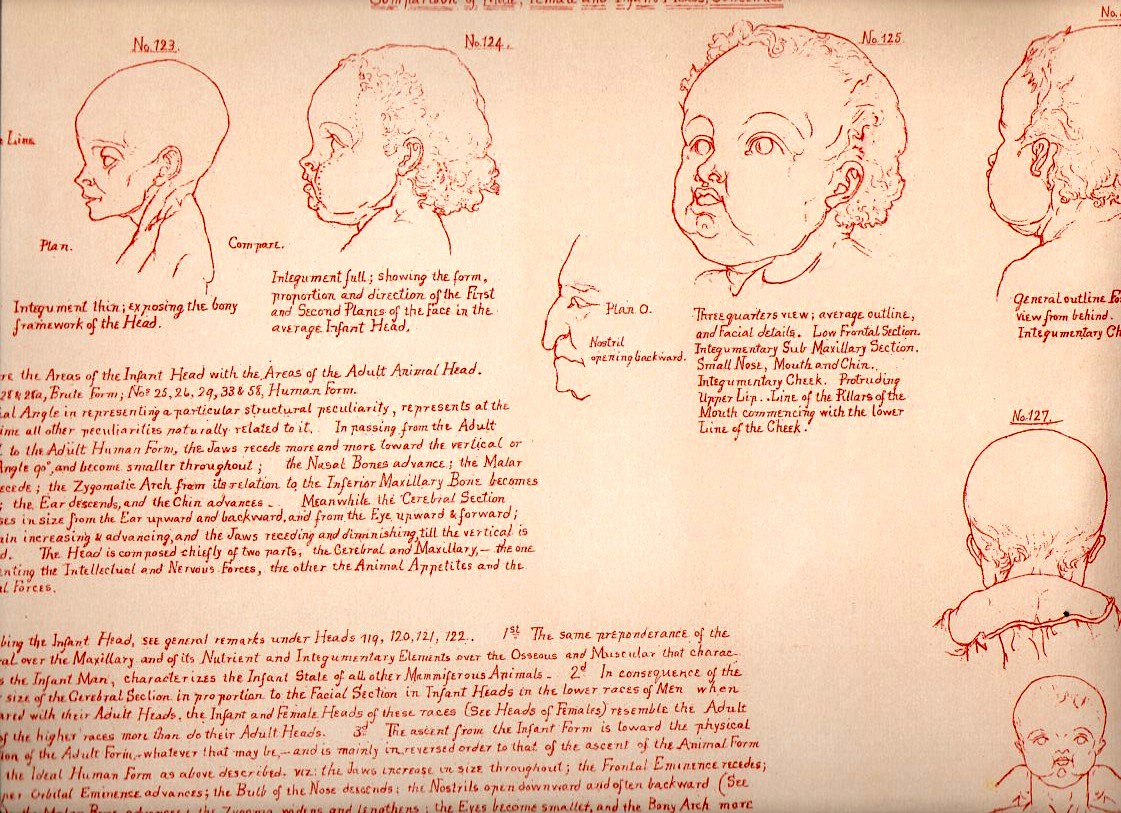 Comparison of Male, Female and Infant Heads, Continued.
No. 123.
No. 124.
No. 125.
No.
Line
Plan.
Compare.
Integument thin; exposing the bony
framework of the Head.
Integument full; showing the form,
proportion and direction of the First
and Second Planes of the Face in the
average Infant Head.
Plan O.
Nostril
opening backward.
Threequarters view; average outline,
and Facial details. Low Frontal Section.
Integumentary Sub Maxillary Section.
Small Nose, Mouth and Chin.
Integumentary Cheek. Protruding
Upper Lip. Line of the Pillars of the
Mouth commencing with the lower
Line of the Cheek.
General outline
view from behind.
Integumentary
No. 127.
the Areas of the Infant Head with the Areas of the Adult Animal Head.
28 & 28a, Brute Form; Nos 25, 26, 29, 33 & 58, Human Form.
Angle in representing a particular structural peculiarity, represents at the
all other peculiarities naturally related to it. In passing from the Adult
to the Adult Human Form, the Jaws recede more and more toward the vertical or
Angle 90°, and become smaller throughout; the Nasal Bones advance; the Malar
; the Zygomatic Arch from its relation to the Inferior Maxillary Bone becomes
; the Ear descends, and the Chin advances. Meanwhile the Cerebral Section
in size from the Ear upward and backward, and from the Eye upward & forward;
increasing & advancing, and the Jaws receding and diminishing, till the vertical is
The Head is composed chiefly of two parts, the Cerebral and Maxillary,— the one
the Intellectual and Nervous Forces, the other the Animal Appetites and the
Forces.
the Infant Head, see general remarks under Heads 119, 120, 121, 122. 1st The same preponderance of the
over the Maxillary and of its Nutrient and Integumentary Elements over the Osseous and Muscular that charac-
the Infant Man, characterizes the Infant State of all other Mammiferous Animals. 2d In consequence of the
size of the Cerebral Section in proportion to the Facial Section in Infant Heads in the lower races of Men when
with their Adult Heads, the Infant and Female Heads of these races (See Heads of Females) resemble the Adult
of the higher races more than do their Adult Heads. 3d The ascent from the Infant Form is toward the physical
of the Adult Form,—whatever that may be,—and is mainly in reversed order to that of the ascent of the Animal Form
the Ideal Human Form as above described, viz: the Jaws increase in size throughout; the Frontal Eminence recedes;
Orbital Eminence advances; the Bulb of the Nose descends; the Nostrils open downward and often backward (See
the Malar Bone advances; the Zygoma widens and lengthens; the Eyes become smaller, and the Bony Arch more